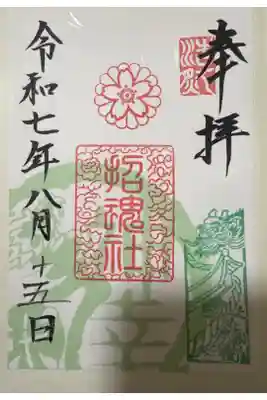 奉拝
招魂社
令和七年八月十五日